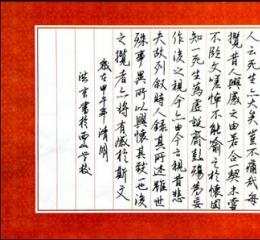 人云死生亦大矣豈不痛哉每
攬昔人興感之由若合一契未嘗
不臨文嗟悼不能喻之於懷固
知一死生為虛誕齊彭殤為妄
作後之視今亦由今之視昔悲
夫故列敘時人錄其所述雖世
殊事異所以興懷其致一也後
之攬者亦將有感於斯文
歲在甲午年清明
書於